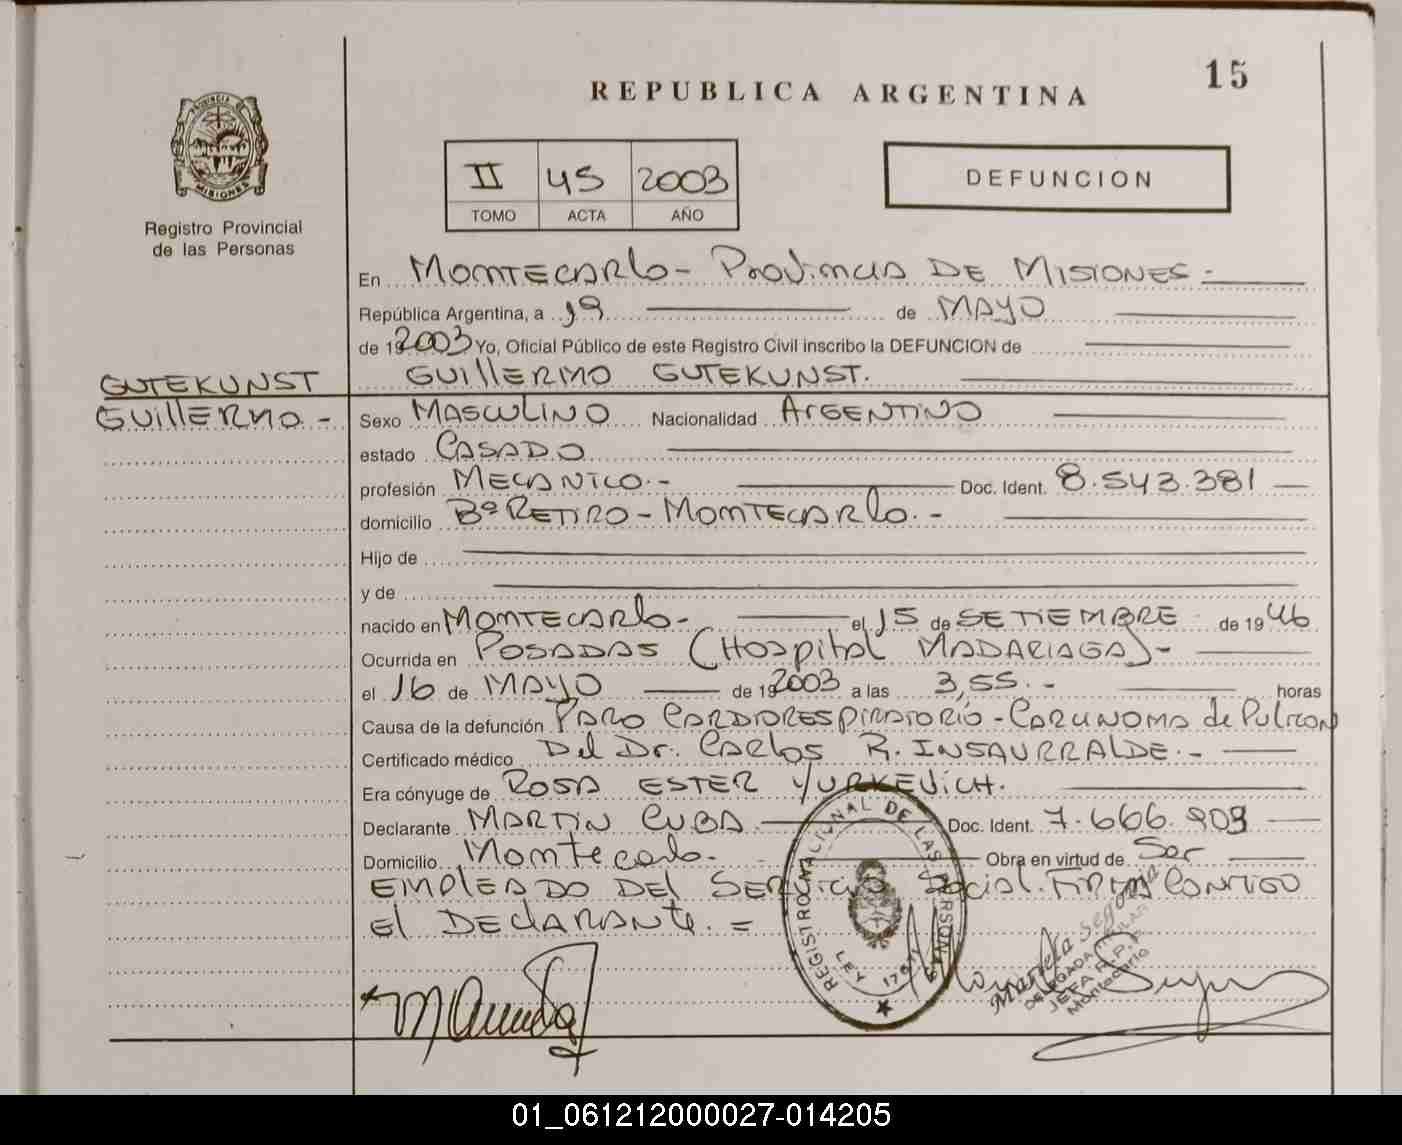 15
REPUBLICA ARGENTINA
PROVINCIA DE
MISIONES
Registro Provincial
de las Personas
II 45 2003
TOMO ACTA AÑO
DEFUNCION
En MONTECARLO - PROVINCIA DE MISIONES -
República Argentina, a 19 de MAYO
de 192003 Yo, Oficial Público de este Registro Civil inscribo la DEFUNCION de
GUILLERMO GUTEKUNST.
GUTEKUNST
GUILLERMO -
Sexo MASCULINO Nacionalidad ARGENTINO
estado CASADO
profesión MECANICO.- Doc. Ident. 8.543.381
domicilio Bº RETIRO - MONTECARLO.-
Hijo de
y de
nacido en MONTECARLO- el 15 de SETIEMBRE de 1946
Ocurrida en POSADAS (HOSPITAL MADARIAGA)-
el 16 de MAYO de 192003 a las 3,55.- horas
Causa de la defunción PARO CARDIORESPIRATORIO - CARCINOMA de PULMON
Certificado médico Del Dr. CARLOS R. INSAURRALDE.-
Era cónyuge de ROSA ESTER YURKEVICH.
Declarante MARTIN CUBA Doc. Ident. 7.666.909
Domicilio Montecarlo. Obra en virtud de Ser
EMPLEADO DEL SERVICIO SOCIAL. FIRMA CONTIGO
El DECLARANTE. =
REGISTRO NACIONAL DE LAS PERSONAS
LEY 17671
Mariela Segovia
DELEGADA TITULAR
JEFA R.P.P.
Montecarlo
01_061212000027-014205